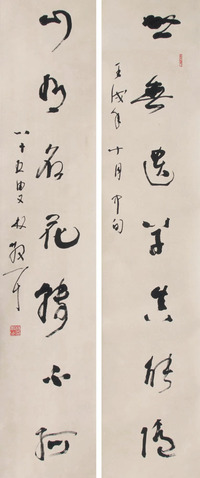 世無遺草真能隱
壬戌年十月中旬
山有名花轉不孤
八十五叟林散耳